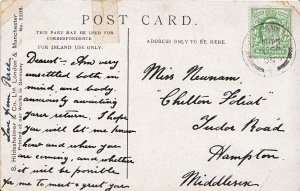 POST CARD.
THIS SPACE MAY BE USED FOR
CORRESPONDENCE
FOR INLAND USE ONLY.
ADDRESS ONLY TO BE HERE.
Dearest - Am very
unsettled both in
mind and body
anxiously awaiting
your return. I hope
you will let me know
how and when you
are coming, and whether
it will be possible
for me to meet & greet you
Love from
S. Hildesheimer & Co., Ltd. London & Manchester
No. 5208
Miss Newnam
"Chilton Foliat"
Tudor Road
Hampton
Middlesex